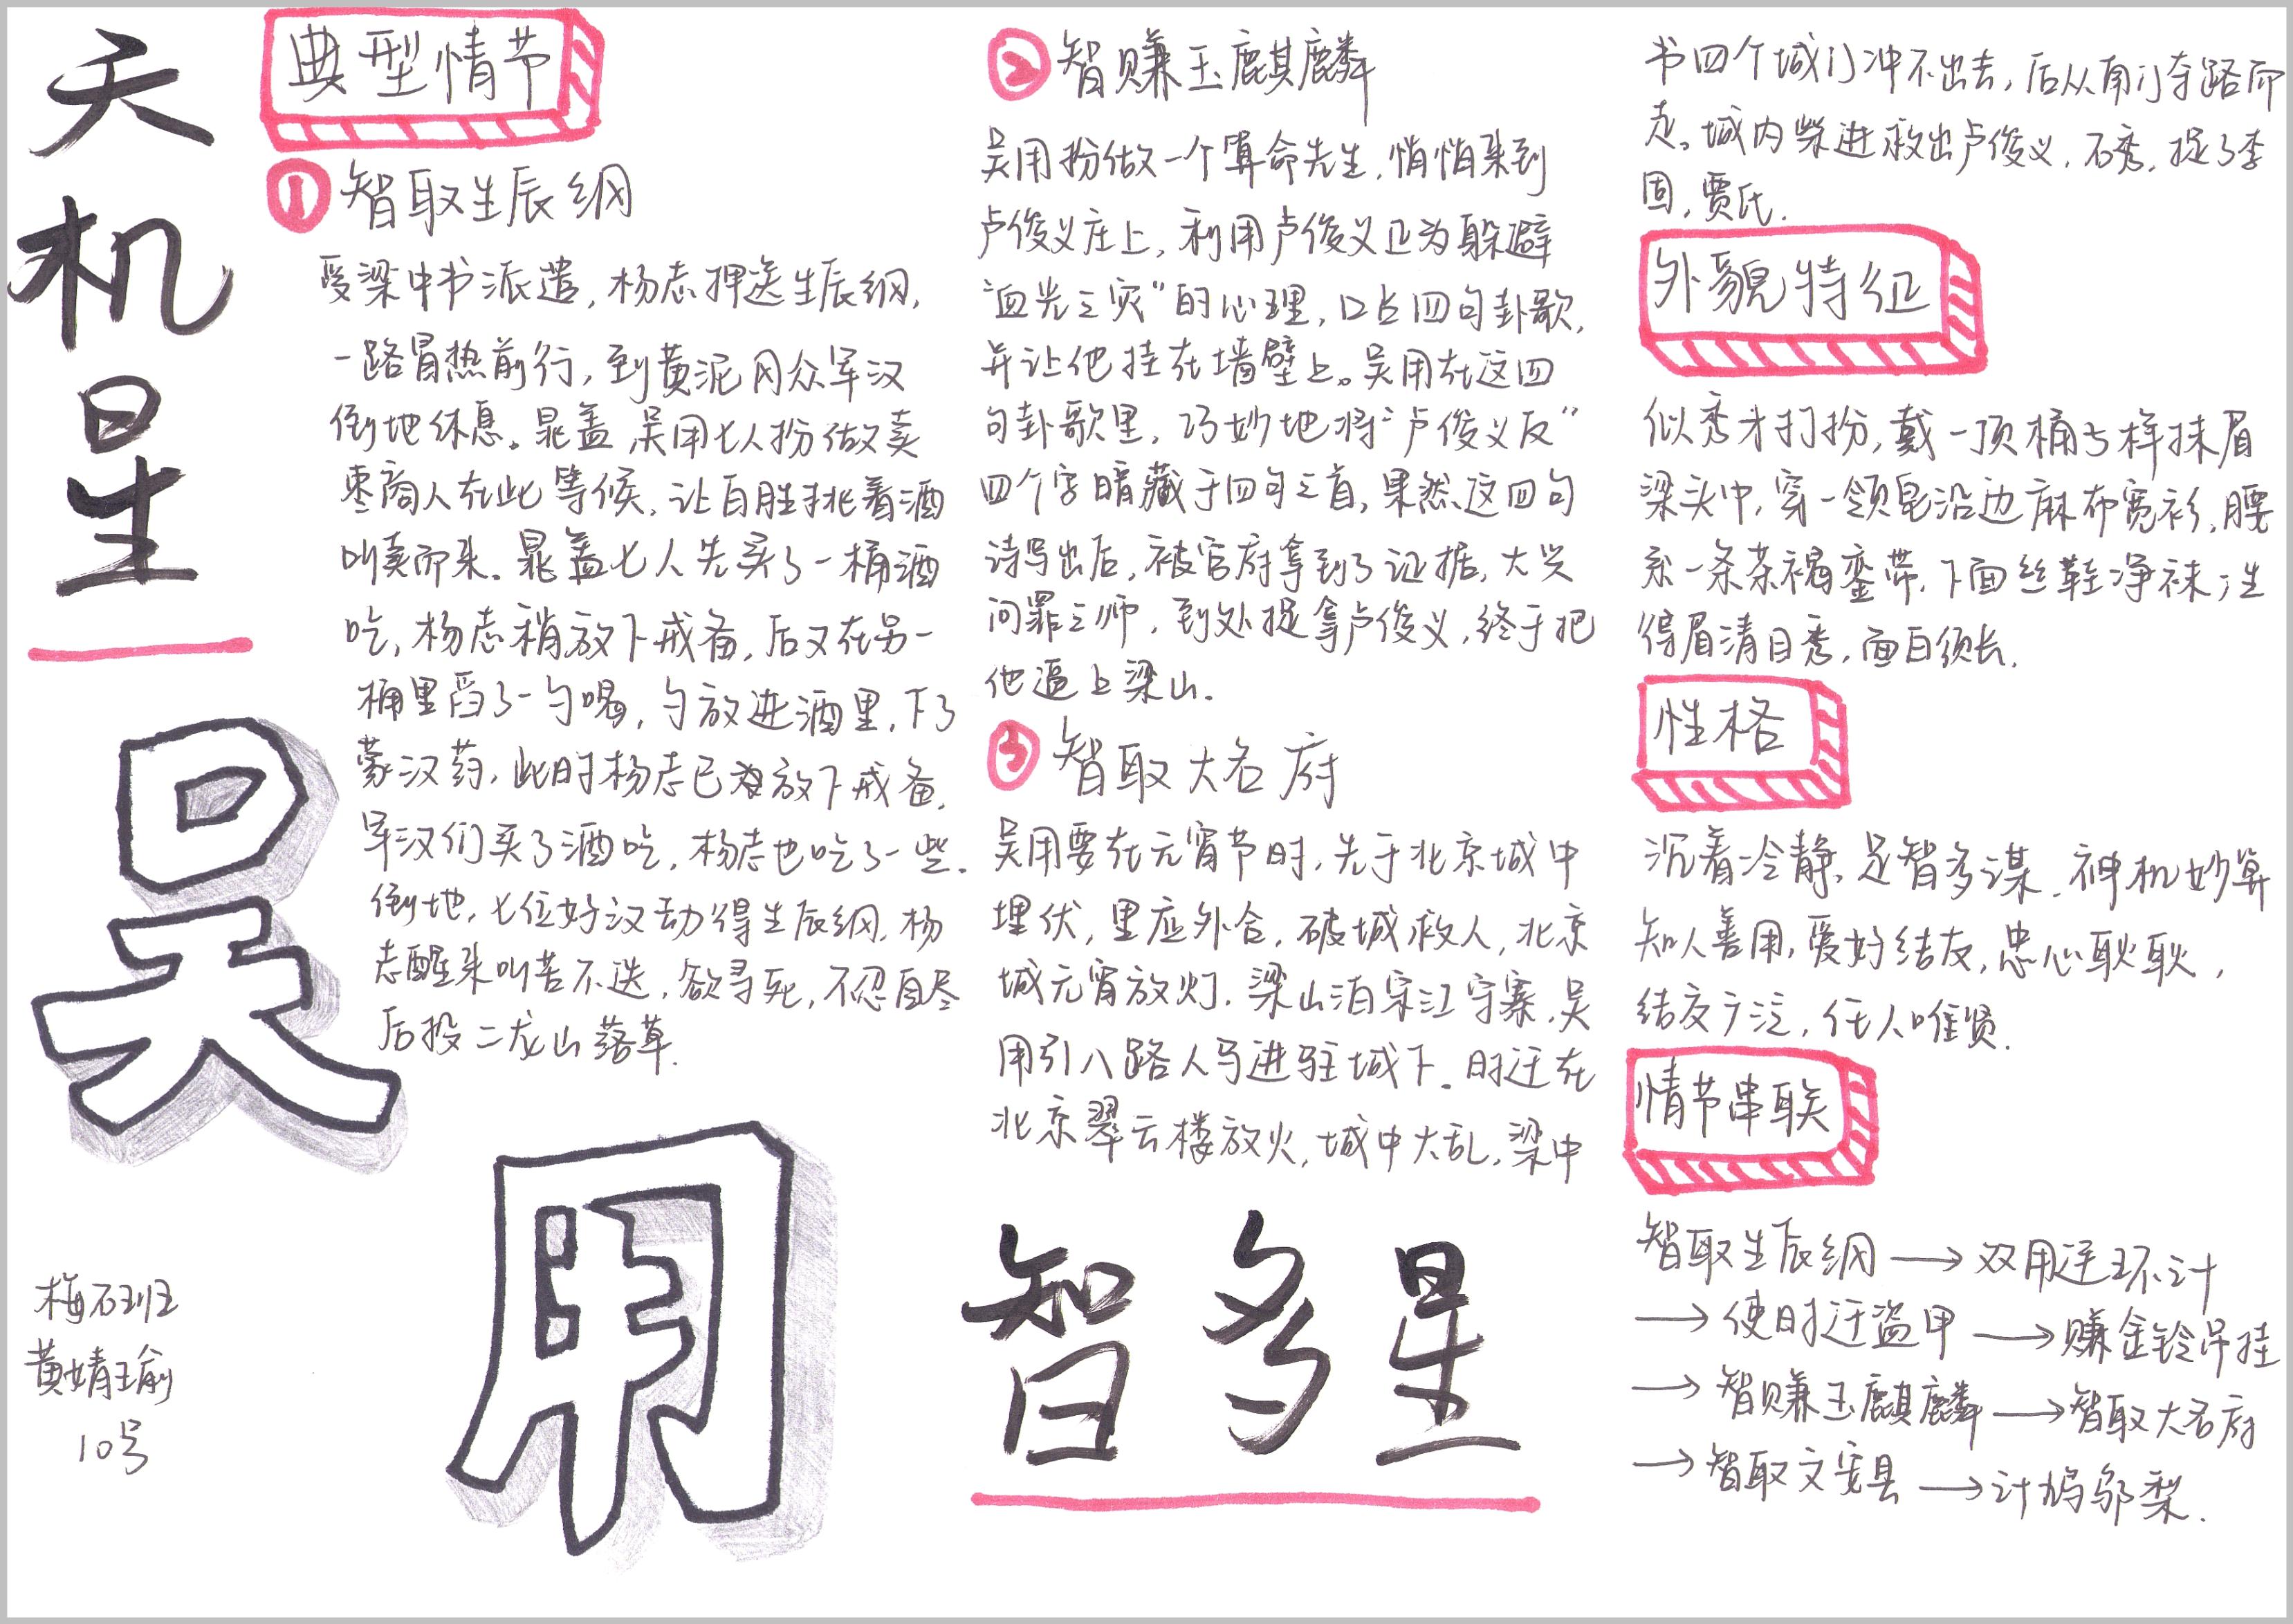 天
机
星
吴
用
梅石班
黄婧瑜
10号
典型情节
① 智取生辰纲
受梁中书派遣，杨志押送生辰纲，
一路冒热前行，到黄泥冈众军汉
倒地休息。晁盖 吴用七人扮做卖
枣商人在此等候，让白胜挑着酒
叫卖而来。晁盖七人先买了一桶酒
吃，杨志稍放下戒备，后又在另一
桶里舀了一勺喝，勺放进酒里，下了
蒙汗药，此时杨志已放下戒备，
军汉们买了酒吃，杨志也吃了一些.
倒地，七位好汉劫得生辰纲，杨
志醒来叫苦不迭，欲寻死，不忍自尽
后投二龙山落草.
② 智赚玉麒麟
吴用扮做一个算命先生，悄悄来到
卢俊义庄上，利用卢俊义正为躲避
“血光之灾”的心理，口占四句卦歌，
并让他挂在墙壁上。吴用在这四
句卦歌里，巧妙地将“卢俊义反”
四个字暗藏于四句之首，果然，这四句
诗写出后，被官府拿到了证据，大兴
问罪之师，到处捉拿卢俊义，终于把
他逼上梁山.
③ 智取大名府
吴用要在元宵节时，先于北京城中
埋伏，里应外合，破城救人，北京
城元宵放灯，梁山泊宋江守寨，吴
用引八路人马进驻城下。时迁在
北京翠云楼放火，城中大乱，梁中
智多星
书四个城门冲不出去，后从南门夺路而
走。城内柴进救出卢俊义，石秀，捉了李
固，贾氏.
外貌特征
似秀才打扮，戴一顶桶子样抹眉
梁头巾，穿一领皂沿边麻布宽衫，腰
系一条茶褐銮带，下面丝鞋净袜；生
得眉清目秀，面白须长.
性格
沉着冷静、足智多谋、神机妙算
知人善用，爱好结友，忠心耿耿，
结交广泛，任人唯贤.
情节串联
智取生辰纲 → 双用连环计
→ 使时迁盗甲 → 赚金铃吊挂
→ 智赚玉麒麟 → 智取大名府
→ 智取文安县 → 计鸩邬梨.